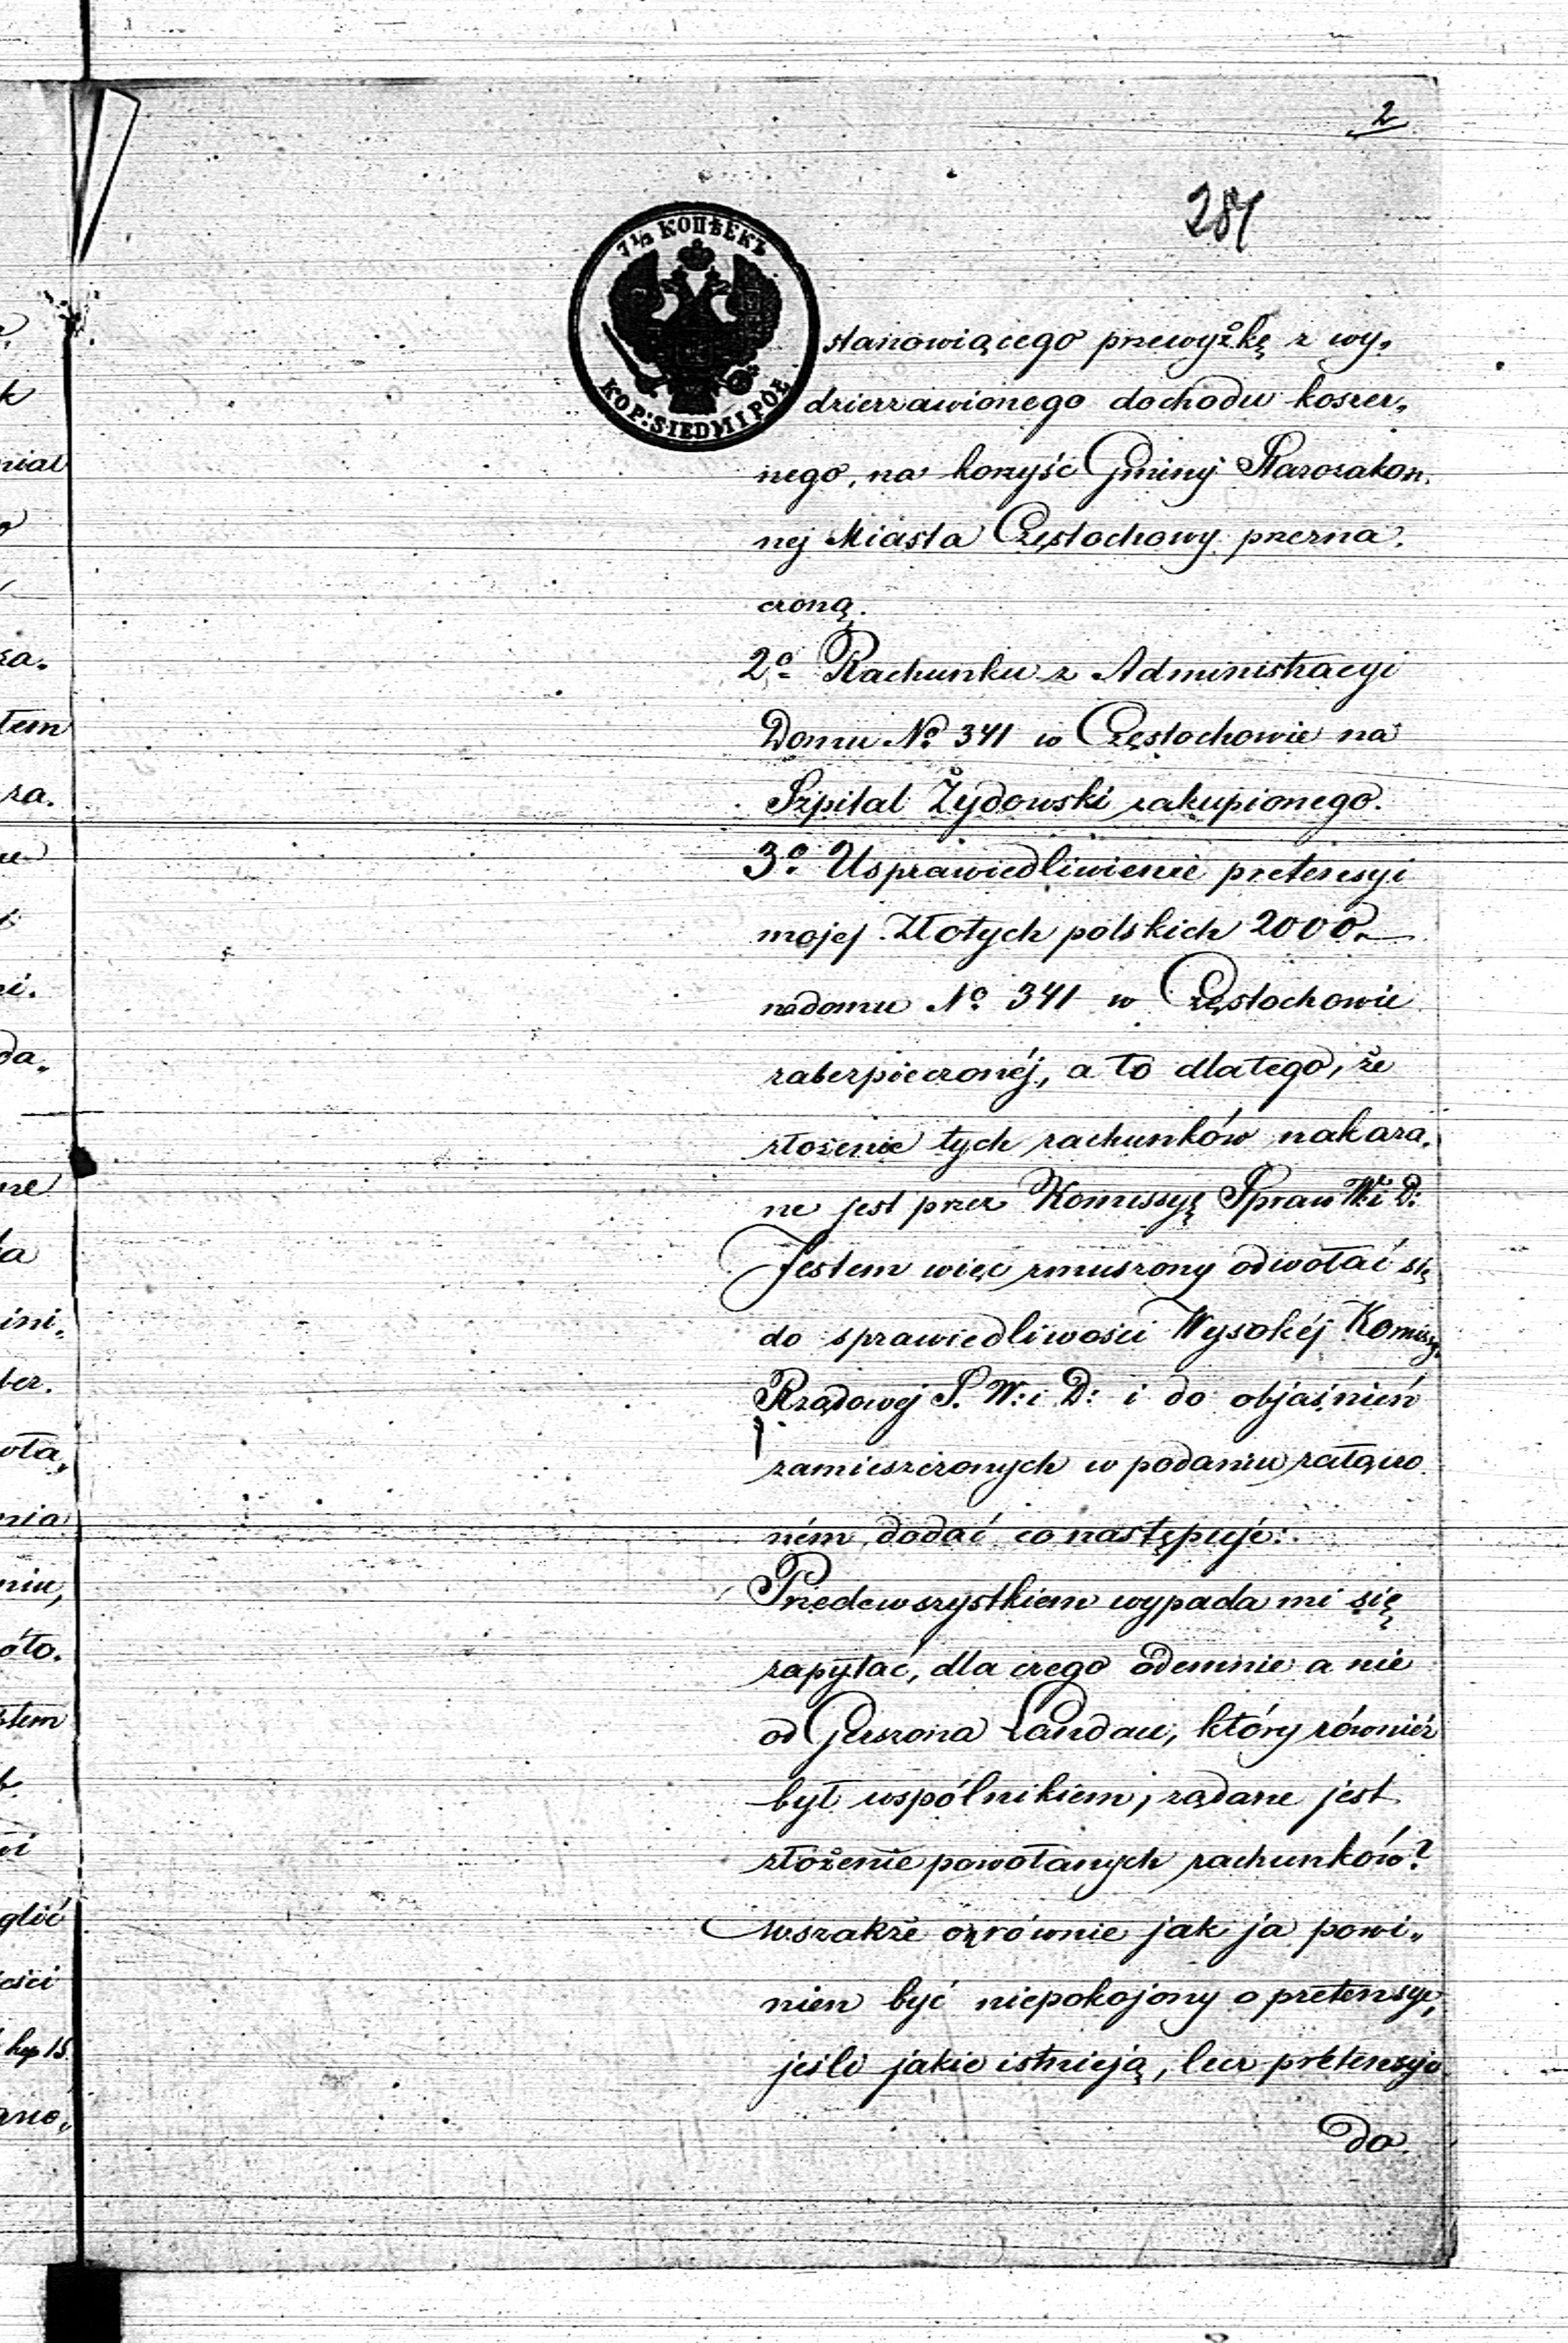 2
281
7½ КОПѢЕКЪ
KOP: SIEDM I PÓŁ
stanowiącego przewyżkę z wy„
dzierzawionego dochodu koszer„
nego, na korzyść Gminy Starozakon„
nej Miasta Częstochowy przezna„
czoną.
2º Rachunku z Administracyi
Domu Nº 341 w Częstochowie na
Szpital Żydowski zakupionego.
3º Usprawiedliwienie pretensyi
mojej Złotych polskich 2000.—
na domu Nº 341 w Częstochowie
zabezpieczonéj, a to dlatego, że
złożenie tych rachunków nakaza„
ne jest przez Komissyę Spraw W: i D:
Jestem więc zmuszony odwołać się
do sprawiedliwości Wysokéj Komissyi
Rządowej S. W: i D: i do objaśnień
zamieszczonych w podaniu załączo„
ném, dodać co następuje:
Przedewszystkiem wypada mi się
zapytać, dla czego odemnie a nie
od Gerszona Landau, który równiéż
był wspólnikiem, żądane jest
złożenie powołanych rachunków?
wszakże on równie jak ja powi„
nien być niepokojony o pretensye,
jeśli jakie istnieją, lecz pretensye
do
k
niał
za.
łem
za.
ni.
da„
ne
ini„
bez.
oła„
nia
niu,
óło.
stem
glić
ości
kop 15
ano„